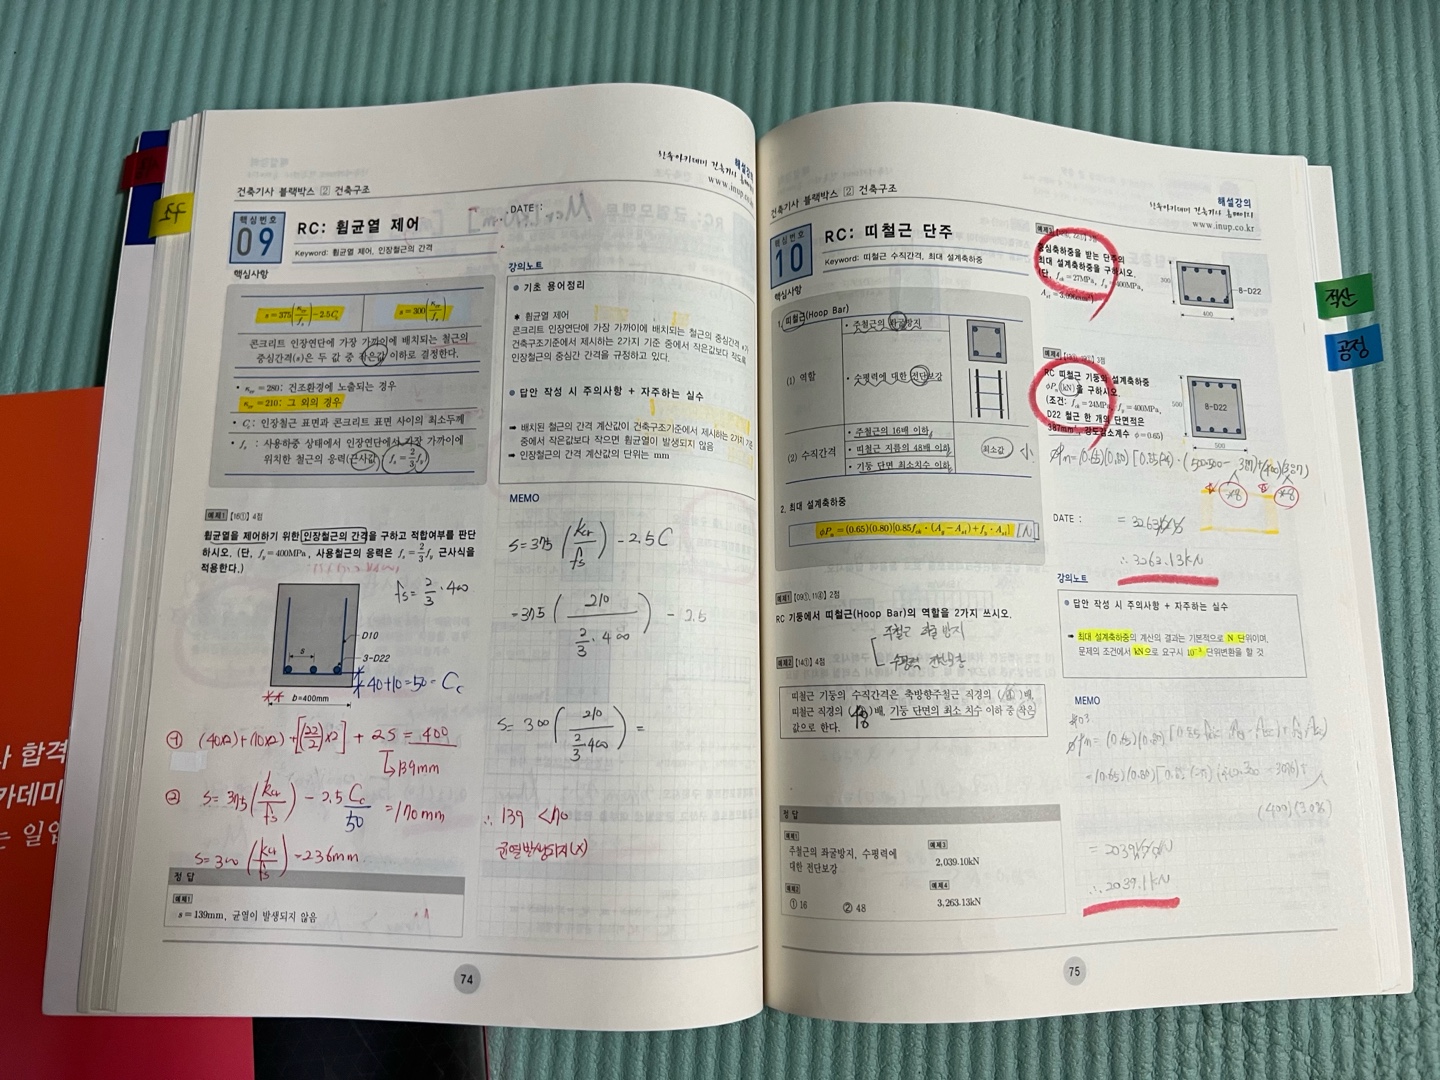 구
적산
공정
사 합격
카데미
는 일인
건축기사 블랙박스 ② 건축구조
해설강의
한솔아카데미 건축기사 홈페이지
www.inup.co.kr
핵심번호
09
RC: 휨균열 제어
Keyword: 휨균열 제어, 인장철근의 간격
DATE :
핵심사항
s=375(κcr/fs)-2.5Cc
s=300(κcr/fs)
콘크리트 인장연단에 가장 가까이에 배치되는 철근의
중심간격(s)은 두 값 중 작은값 이하로 결정한다.
• κcr=280: 건조환경에 노출되는 경우
κcr=210: 그 외의 경우
• Cc: 인장철근 표면과 콘크리트 표면 사이의 최소두께
• fs : 사용하중 상태에서 인장연단에서 가장 가까이에
위치한 철근의 응력(근사값: fs=2/3fy)
예제1 【16①】 4점
휨균열을 제어하기 위한 인장철근의 간격을 구하고 적합여부를 판단
하시오. (단, fy=400MPa, 사용철근의 응력은 fs=2/3fy 근사식을
적용한다.)
fs= 2/3 · 400
D10
s
3-D22
b=400mm
40+10=50= Cc
① (40x2)+(10x2)+[(22/2)x2] + 2S = 400
↳139mm
② S= 375(kcr/fs) - 2.5 Cc =170mm
50
S= 300 (kcr/fs) =236mm
정 답
예제1
s=139mm, 균열이 발생되지 않음
강의노트
기초 용어정리
✱ 휨균열 제어
콘크리트 인장연단에 가장 가까이에 배치되는 철근의 중심간격 s가
건축구조기준에서 제시하는 2가지 기준 중에서 작은값보다 작도록
인장철근의 중심간 간격을 규정하고 있다.
답안 작성 시 주의사항 + 자주하는 실수
➡ 배치된 철근의 간격 계산값이 건축구조기준에서 제시하는 2가지 기준
중에서 작은값보다 작으면 휨균열이 발생되지 않음
➡ 인장철근의 간격 계산값의 단위는 mm
MEMO
S=375 (kcr/fs) - 2.5C
=375 ( 210 / 2/3 · 400 ) - 2.5
S= 300 ( 210 / 2/3 · 400 ) =
∴ 139 < 170
균열발생되지(X)
74
건축기사 블랙박스 ② 건축구조
해설강의
한솔아카데미 건축기사 홈페이지
www.inup.co.kr
핵심번호
10
RC: 띠철근 단주
Keyword: 띠철근 수직간격, 최대 설계축하중
핵심사항
1. 띠철근(Hoop Bar)
(1) 역할
• 주철근의 좌굴방지
• 수평력에 대한 전단보강
(2) 수직간격
• 주철근의 16배 이하
• 띠철근 지름의 48배 이하
• 기둥 단면 최소치수 이하
최소값
小
2. 최대 설계축하중
φPn=(0.65)(0.80)[0.85fck·(Ag-Ast)+fy·Ast] [N]
예제1 【09①, 11④】 2점
RC 기둥에서 띠철근(Hoop Bar)의 역할을 2가지 쓰시오.
주철근 좌굴 방지
예제2 【14①】 4점
띠철근 기둥의 수직간격은 축방향주철근 직경의 ( )배,
띠철근 직경의 ( 48 )배, 기둥 단면의 최소 치수 이하 중 작은
값으로 한다.
정 답
예제1
주철근의 좌굴방지, 수평력에
대한 전단보강
예제2
① 16 ② 48
예제3
2,039.10kN
예제4
3,263.13kN
예제3
중심축하중을 받는 단주의
최대 설계축하중을 구하시오.
(단, fck=27MPa, fy=400MPa,
Ast=3,096mm²)
300
8-D22
400
예제4
RC 띠철근 기둥의 설계축하중
φPn(kN)을 구하시오.
(조건: fck=24MPa, fy=400MPa,
D22 철근 한 개의 단면적은
387mm², 강도감소계수 φ=0.65)
500
8-D22
500
φPn=(0.65)(0.80)[0.85(24)·(500·500- 387)+(400)(387)
*8 *8
DATE :
∴ 3263.13kN
강의노트
답안 작성 시 주의사항 + 자주하는 실수
➡ 최대 설계축하중의 계산의 결과는 기본적으로 N 단위이며,
문제의 조건에서 kN으로 요구시 10⁻³ 단위변환을 할 것
MEMO
(400)(3096)
∴ 2039.1kN
75